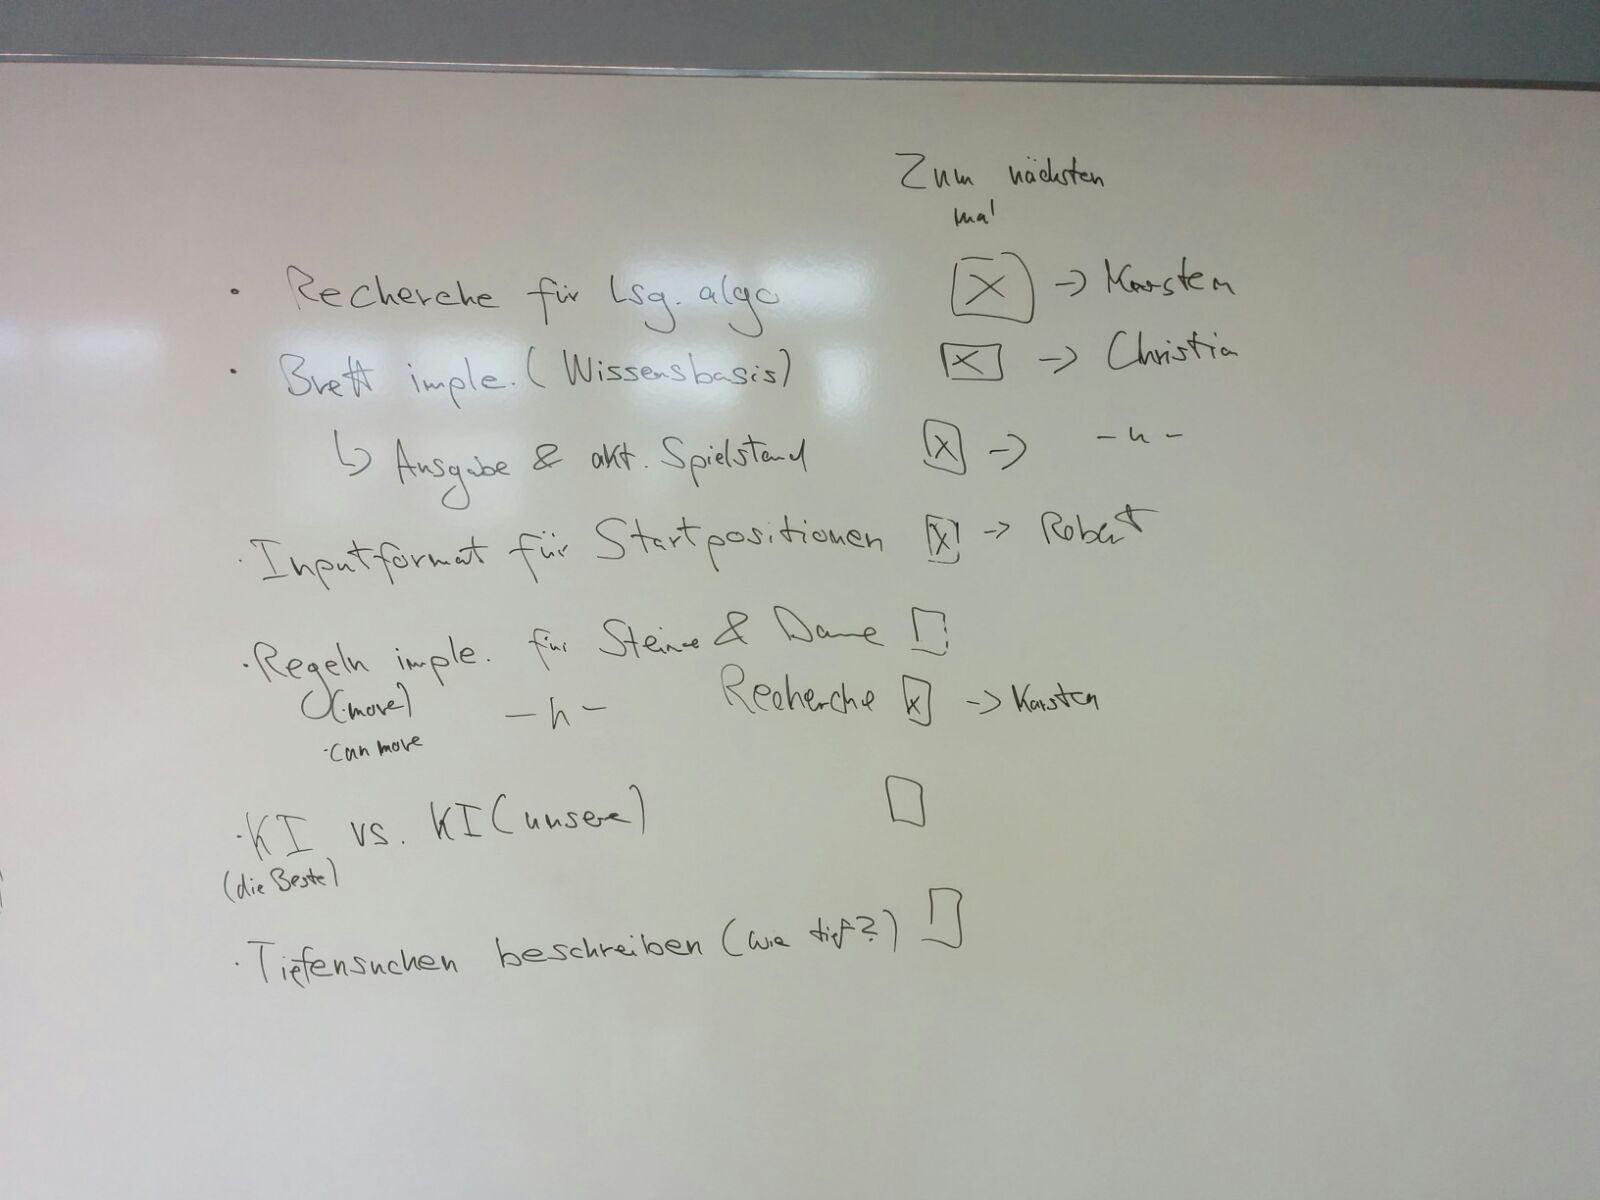 Zum nächsten
mal
· Recherche für Lsg. algo ☒ -> Karsten
· Brett imple. (Wissensbasis) ☒ -> Christian
↳ Ausgabe & akt. Spielstand ☒ -> -"-
· Inputformat für Startpositionen ☒ -> Robert
· Regeln imple. für Steine & Dame ☐
(·move) -"- Recherche ☒ -> Karsten
· can move
· KI vs. KI (unsere) ☐
(die Beste)
· Tiefensuchen beschreiben (wie tief?) ☐